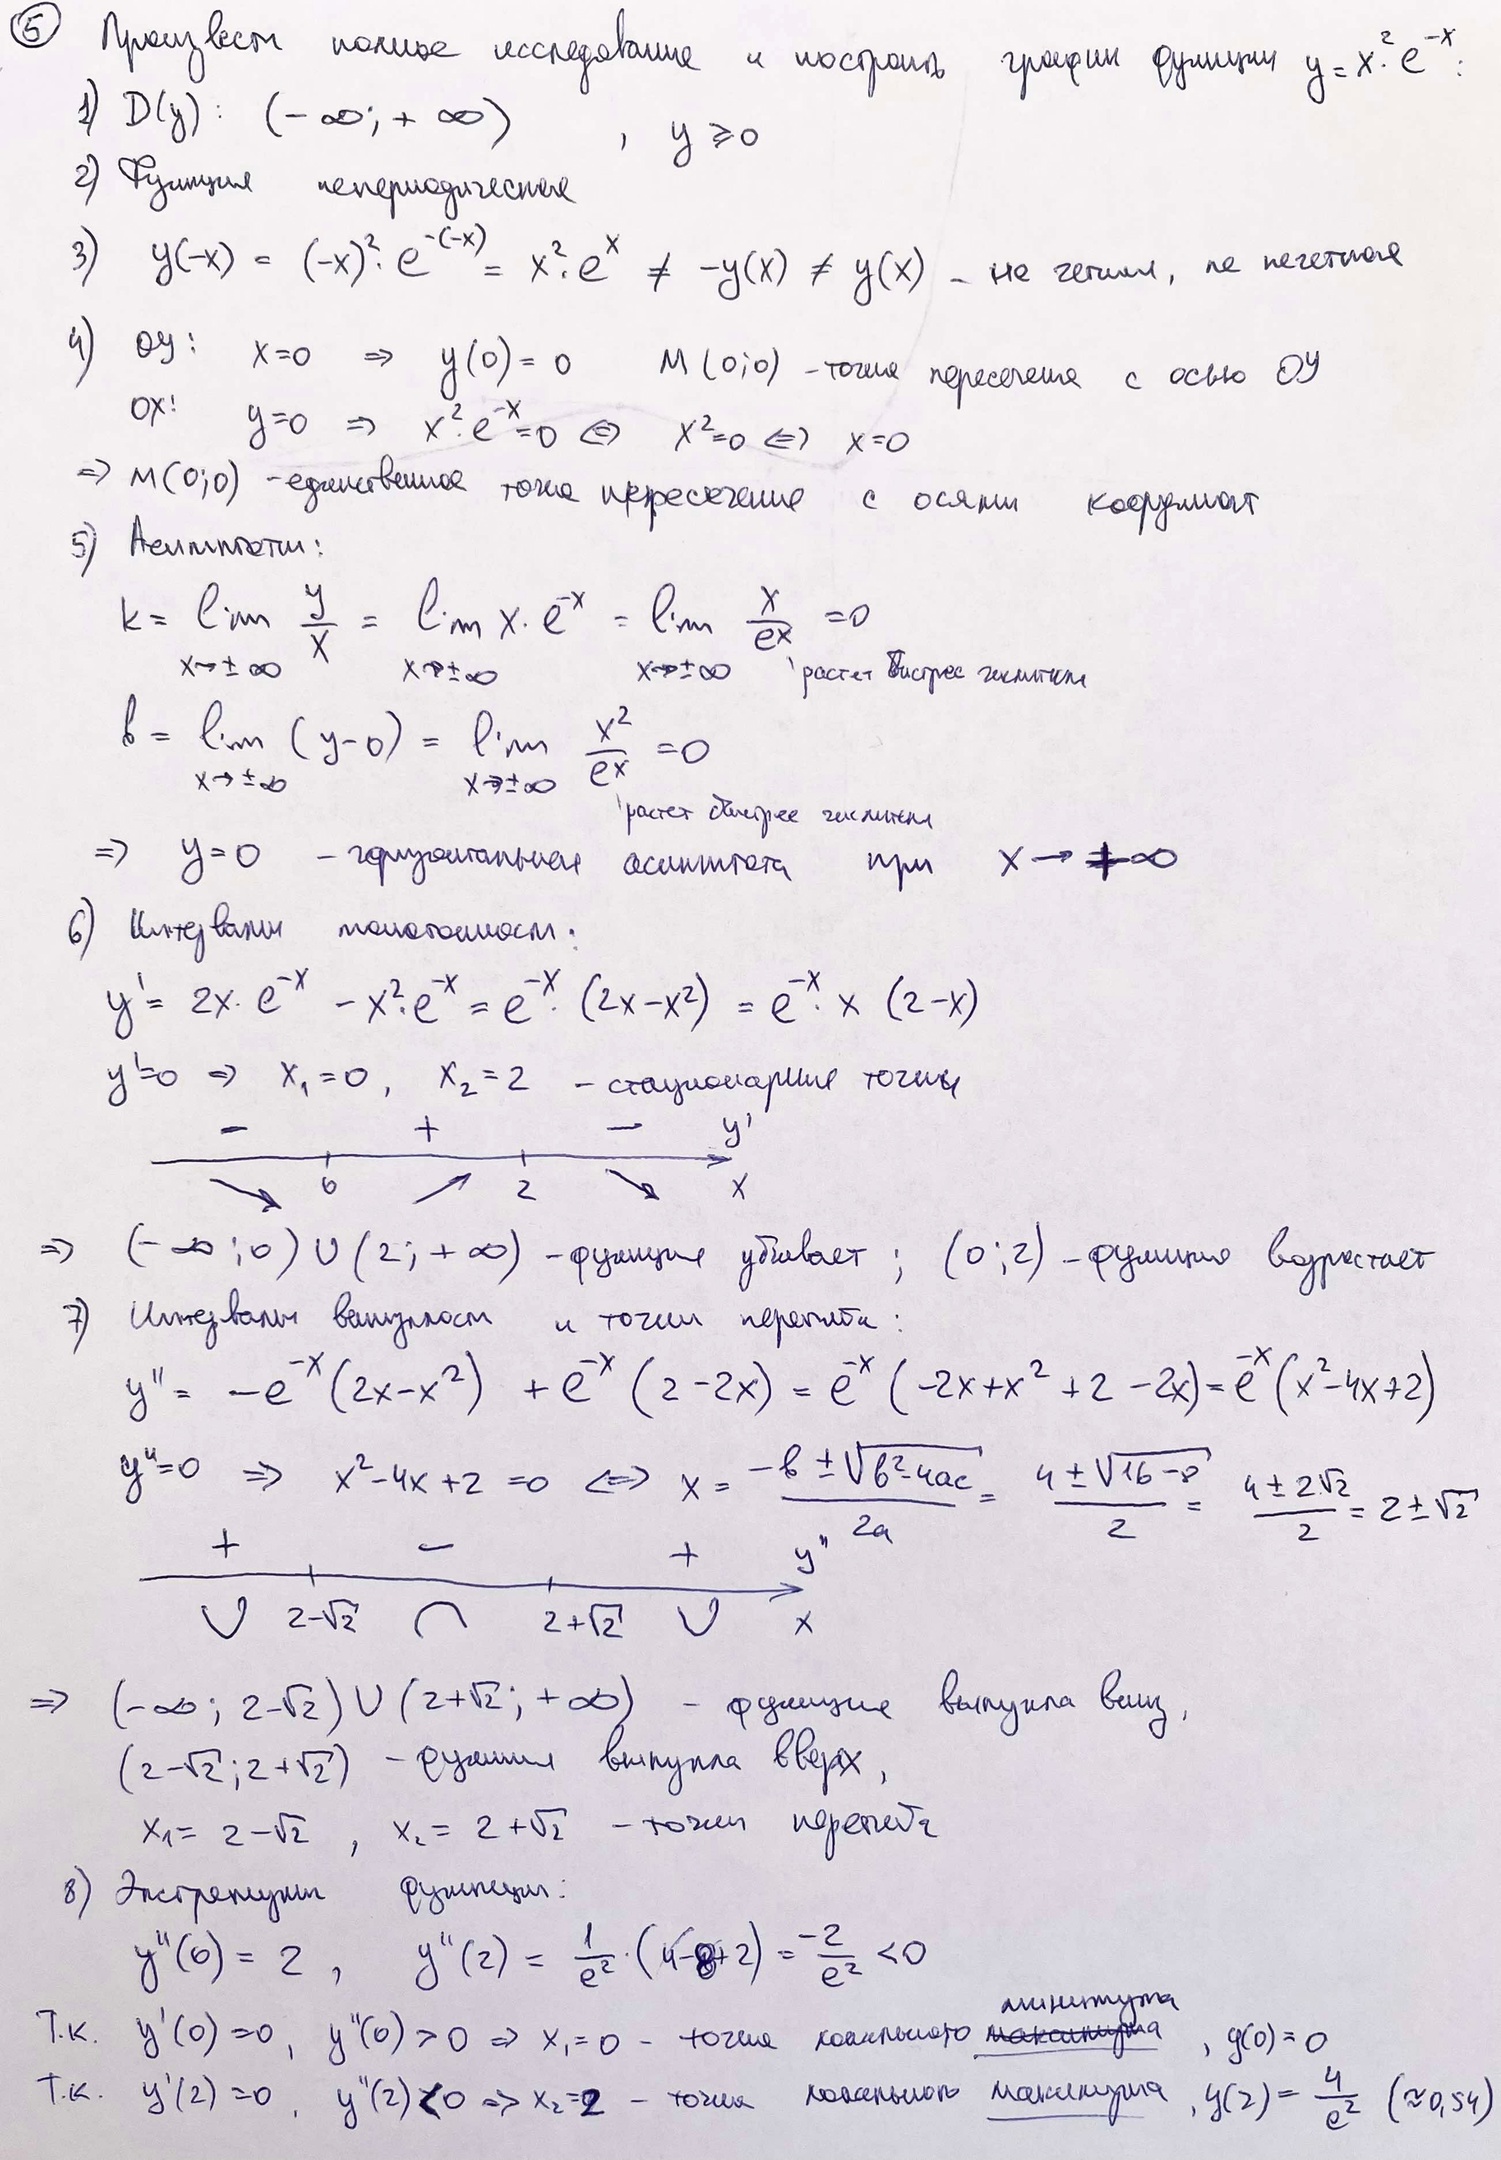 ⑤ Произвести полное исследование и построить график функции y = x²·e^(-x):
1) D(y): (-∞; +∞) , y ⩾ 0
2) Функция непериодическая
3) y(-x) = (-x)²·e^(-(-x)) = x²·e^x ≠ -y(x) ≠ y(x) - не четная, не нечетная
4) OY: x=0 ⇒ y(0) = 0 M(0;0) - точка пересечения с осью OY
OX: y=0 ⇒ x²·e^(-x)=0 ⇔ x²=0 ⇔ x=0
⇒ M(0;0) - единственная точка пересечения с осями координат
5) Асимптоты:
k = lim_(x→±∞) y/x = lim_(x→±∞) x·e^(-x) = lim_(x→±∞) x/e^x = 0
растет быстрее числителя
b = lim_(x→±∞) (y-0) = lim_(x→±∞) x²/e^x = 0
растет быстрее числителя
⇒ y=0 - горизонтальная асимптота при x → +∞
6) Интервалы монотонности:
y' = 2x·e^(-x) - x²·e^(-x) = e^(-x)·(2x-x²) = e^(-x)·x (2-x)
y'=0 ⇒ x₁=0, x₂=2 - стационарные точки
- + - y'
0 2 x
⇒ (-∞;0)∪(2;+∞) - функция убывает; (0;2) - функция возрастает
7) Интервалы выпуклости и точки перегиба:
y'' = -e^(-x)(2x-x²) + e^(-x)(2-2x) = e^(-x)(-2x+x²+2-2x) = e^(-x)(x²-4x+2)
y''=0 ⇒ x²-4x+2=0 ⇔ x = (-b±√(b²-4ac))/2a = (4±√(16-8))/2 = (4±2√2)/2 = 2±√2
+ - + y''
∪ 2-√2 ∩ 2+√2 ∪ x
⇒ (-∞; 2-√2)∪(2+√2; +∞) - функция выпукла вниз,
(2-√2; 2+√2) - функция выпукла вверх,
x₁= 2-√2 , x₂= 2+√2 - точки перегиба
8) Экстремумы функции:
y''(0) = 2 , y''(2) = 1/e²·(4-8+2) = -2/e² < 0
минимума
Т.к. y'(0)=0, y''(0)>0 ⇒ x₁=0 - точка локального максимума, y(0)=0
Т.к. y'(2)=0, y''(2)<0 ⇒ x₂=2 - точка локального максимума, y(2)= 4/e² (≈0,54)